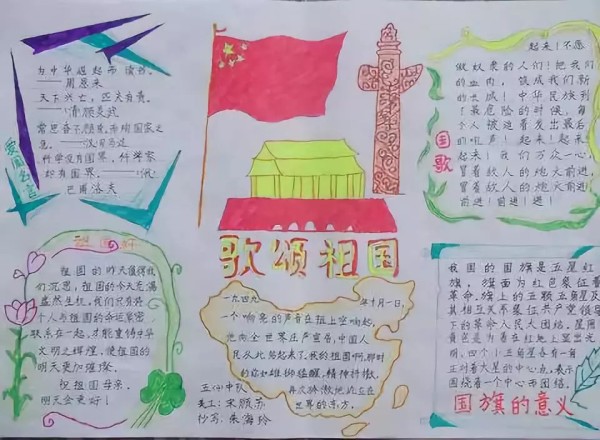 为中华崛起而读书。
——周恩来
天下兴亡，匹夫有责。
——清顾炎武
常思奋不顾身，而殉国家之
急。——汉司马迁
科学没有国界，科学家
却有国界。——
巴甫洛夫
爱国名言
起来！不愿
做奴隶的人们！把我们
的血肉，筑成我们新
的长城！中华民族到
了最危险的时候，每
个人被迫着发出最后
的吼声！起来！起来！
起来！我们万众一心，
冒着敌人的炮火前进，
冒着敌人的炮火前进！
前进！前进！进！
国歌
歌颂祖国
祖国的昨天值得我
们沉思，祖国的今天充满
盎然生机，我们只有将
个人与祖国的命运紧密
联系在一起，才能重铸中华
文明之辉煌，使祖国的
明天更加璀璨。
祝祖国母亲，
明天会更好！
一九四九年十月一日，
一个响亮的声音在班上空响起，
他向全世界庄严宣告，中国人
民从此站起来了，我的祖国啊，那时
的你如雄狮猛醒，精神抖擞，
再次骄傲地屹立在
世界的东方。
五（1）中队
美工：宋颀苏
抄写：朱海玲
我国的国旗是五星红
旗，旗面为红色象征着
革命。旗上的五颗五角星及
其相互关系象征共产党领导
下的革命人民大团结。星用
黄色是为着在红地上显出光
明，四个小五角星各有一角
正对着大星的中心点，表示
围绕着一个中心而团结。
国旗的意义